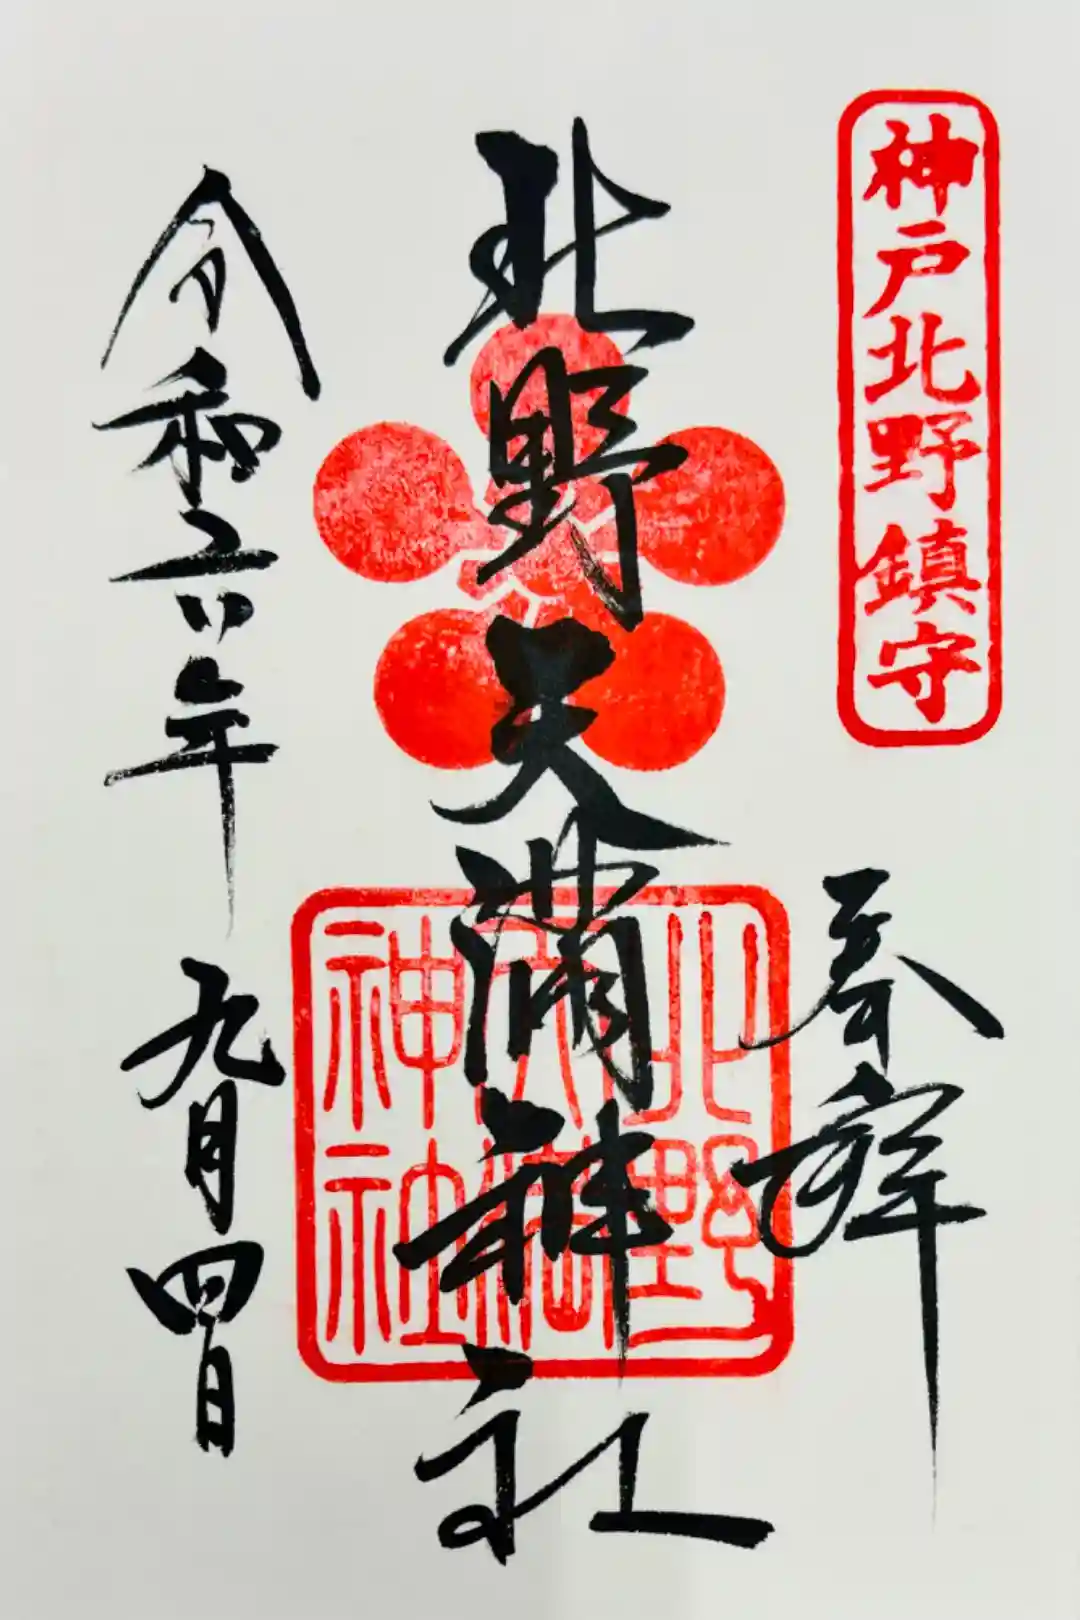 神戸北野鎮守
奉拝
北野天満神社
北野
天満
神社
令和六年九月四日